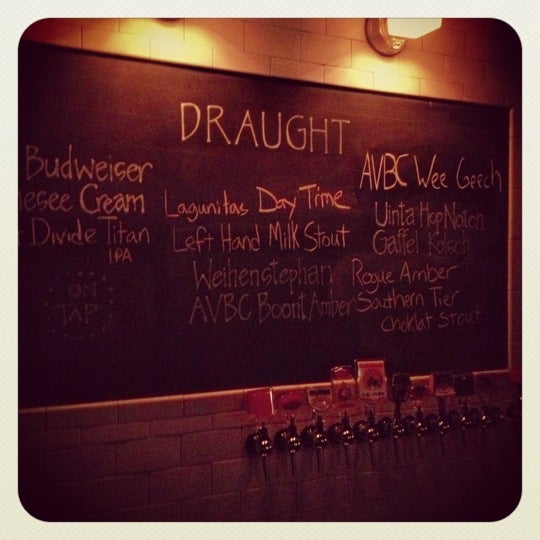 DRAUGHT
Budweiser
esee Cream
Divide Titan
IPA
ON
TAP
Lagunitas Day Time
Left Hand Milk Stout
Weihenstephan
AVBC Boont Amber
AVBC Wee Geech
Uinta Hop Notch
Gaffel Kolsch
Rogue Amber
Southern Tier
Choklat Stout